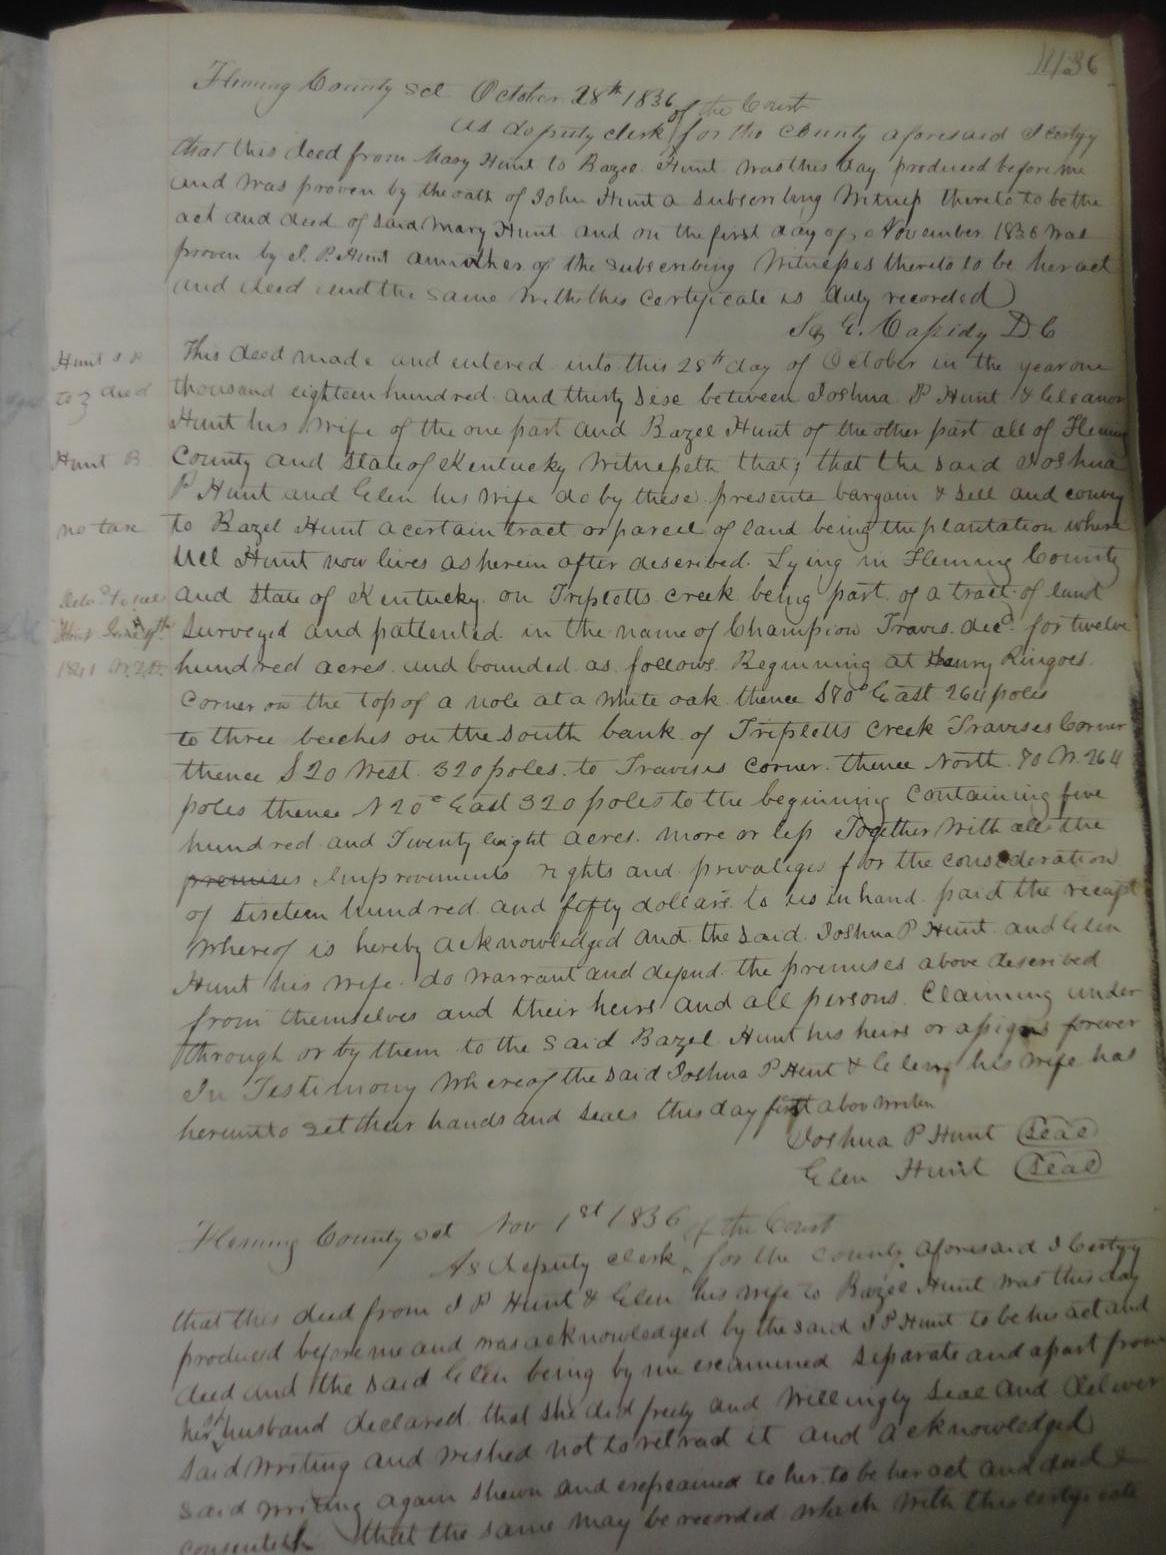 436
Fleming County Sct October 28th 1836
of the Court
As deputy clerk for the County aforesaid I certify
that this deed from Mary Hunt to Bazel Hunt was this day produced before me
and was proven by the oath of John Hunt a subscribing Witness thereto to be the
act and deed of said Mary Hunt and on the first day of November 1836 was
proven by J. P. Hunt annother of the subscribing Witnesses thereto to be her act
and deed and the same with this certificate is duly recorded
E. Cassidy D C
Hunt J P
to } deed
Hunt B
no tax
1841
This deed made and entered into this 28th day of October in the year one
thousand eighteen hundred and thirty six between Joshua P Hunt & Eleanor
Hunt his wife of the one part and Bazel Hunt of the other part all of Fleming
County and State of Kentucky Witnesseth that; that the said Joshua
P Hunt and Elen his wife do by these presents bargain & sell and convey
to Bazel Hunt a certain tract or parcel of land being the plantation where
Uel Hunt now lives as herein after described. Lying in Fleming County
and State of Kentucky on Tripletts Creek being part of a tract of land
surveyed and pattented in the name of Champion Travis decd. for twelve
hundred acres and bounded as follows Beginning at Henry Ringoes
corner on the top of a nole at a white oak thence S70° East 264 poles
to three beeches on the South bank of Tripletts Creek Travises Corner
thence S 20 West 320 poles to Travises corner. thence North 70 W. 264
poles thence N 20° East 320 poles to the beginning Containing five
hundred and Twenty eight acres more or less Together with all the
premises Improvements rights and privaliges for the consideration
of sixteen hundred and fifty dollars to us in hand paid the receipt
whereof is hereby acknowledged and the said Joshua P Hunt and Elen
Hunt his wife do warrant and defend the premises above described
from themselves and their heirs and all persons Claiming under
through or by them to the said Bazel Hunt his heirs or assigns forever
In Testimony Whereof the said Joshua P Hunt & Elen his wife has
hereunto set their hands and seals this day first abov writen
Joshua P Hunt (Seal)
Elen Hunt (Seal)
Fleming County Sct Nov 1st 1836
of the Court
As deputy clerk for the County aforesaid I Certify
that this deed from J P Hunt & Elen his wife to Bazel Hunt was this day
produced before me and was acknowledged by the said J P Hunt to be his act and
deed and the said Elen being by me examined separate and apart from
her sd husband declared that she did freely and willingly seal and deliver
said writing and wished not to retract it and acknowledged
said writing again shewn and explained to her to be her act and deed &
consented that the same may be recorded which with this certificate